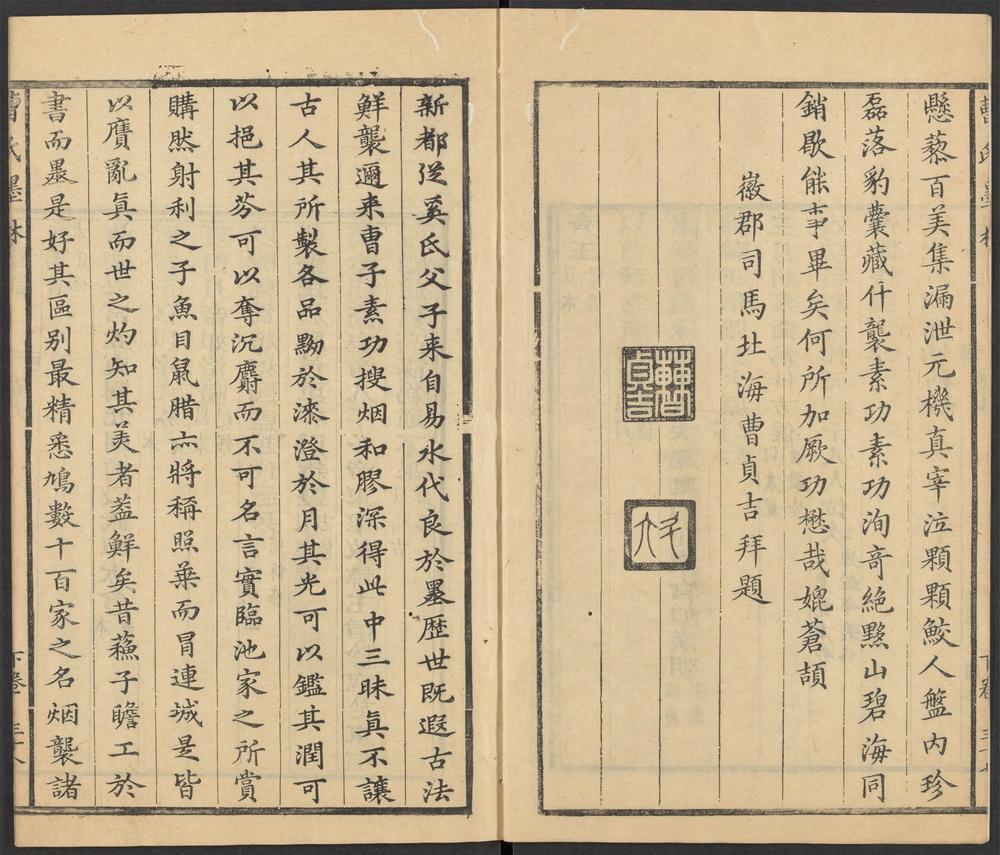 懸藜百美集漏泄元機真宰泣顆顆鮫人盤内珍
磊落豹囊藏什襲素功素功洵竒絶黟山碧海同
銷歇能事畢矣何所加厥功懋哉媲蒼頡
徽郡司馬北海曹貞吉拜題
曹貞吉
下卷
新都從奚氏父子来自易水代良於墨歴世既遐古法
鮮襲邇来曹子素功搜烟和膠深得此中三昧真不讓
古人其所製各品黝於漆澄於月其光可以鑑其潤可
以挹其芬可以奪沉麝而不可名言實臨池家之所賞
購然射利之子魚目鼠腊亦將稱照乗而冒連城是皆
以贋亂真而世之灼知其美者葢鮮矣昔蘓子瞻工於
書而墨是好其區别最精悉鳩數十百家之名烟襲諸
曹氏墨林
下卷